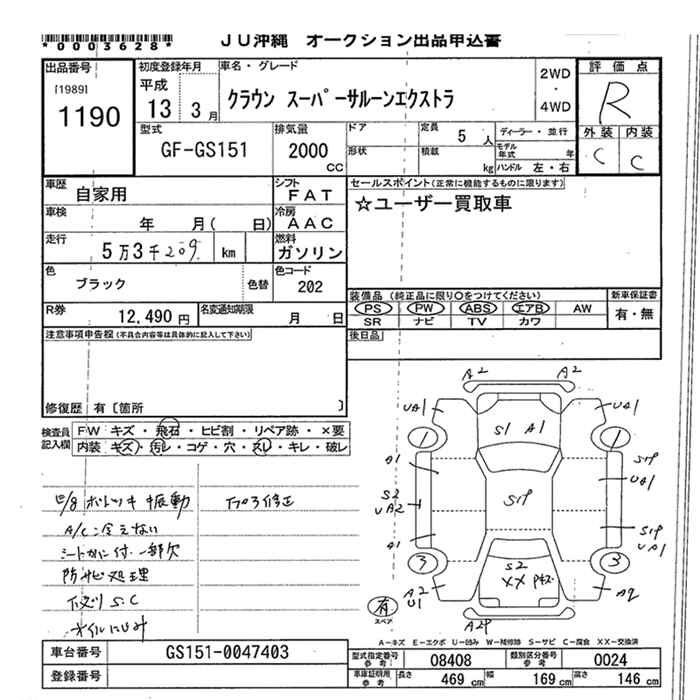 *0003628*
JU沖縄 オークション出品申込書
出品番号
[1989]
1190
初度登録年月
平成
13 3月
車名・グレード
クラウン スーパーサルーンエクストラ
2WD
・
4WD
評価点
R
外装 内装
C C
型式
GF-GS151
排気量
2000
CC
ドア
形状
定員 5 人
積載 kg
ディーラー・並行
モデル年式 年
ハンドル 左・右
車歴
自家用
シフト
FAT
車検
年 月( 日)
冷房
AAC
走行
5万3千209 km
燃料
ガソリン
色
ブラック
色替
色コード
202
R券
12,490円
名変通知期限
月 日
セールスポイント(正常に機能するものに限ります)
☆ユーザー買取車
装備品 (純正品に限り○をつけてください)
PS PW ABS エアB AW
SR ナビ TV カワ
新車保証書
有・無
後日品
注意事項申告欄(不具合内容等は具体的に記入して下さい)
修復歴 有〔箇所 〕
検査員
記入欄
FW キズ・飛石・ヒビ割・リペア跡・×要
内装 キズ・汚レ・コゲ・穴・スレ・キレ・破レ
A/C冷えない
防サビ処理
A2 A2
UA1 UA1
S1 A1
1 1
A1 S1P
UA1
S2
UA2
S1P
S1P
UA1
A1
3 3
S2
XX
A2
U1
A2
A2P
有
スペア
A-キズ E-エクボ U-凹み W-補修跡 S-サビ C-腐食 XX-交換済
車台番号
GS151-0047403
登録番号
型式指定番号
参考
08408
類別区分番号
参考
0024
車庫証明用
参考
長さ 469 cm
幅 169 cm
高さ 146 cm